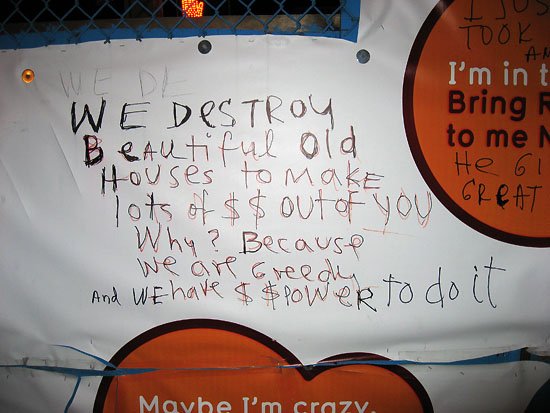 WE DE
WE DESTROY
Beautiful Old
Houses to MAKE
lots of $$ OUT OF YOU
Why? Because
we are Greedy
And WE have $$POWER to do it
I JUS
TOOK
AN
I'm in t
Bring R
to me N
HE GI
GREAT
Maybe I'm crazy